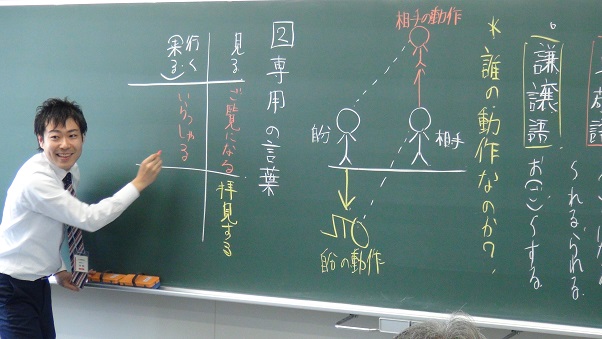 謙譲語
お(ご)〜する
*誰の動作なのか?
相手の動作
相手
自分
自分の動作
2 専用の言葉
見る
ご覧になる
拝見する
行く
来る
いらっしゃる